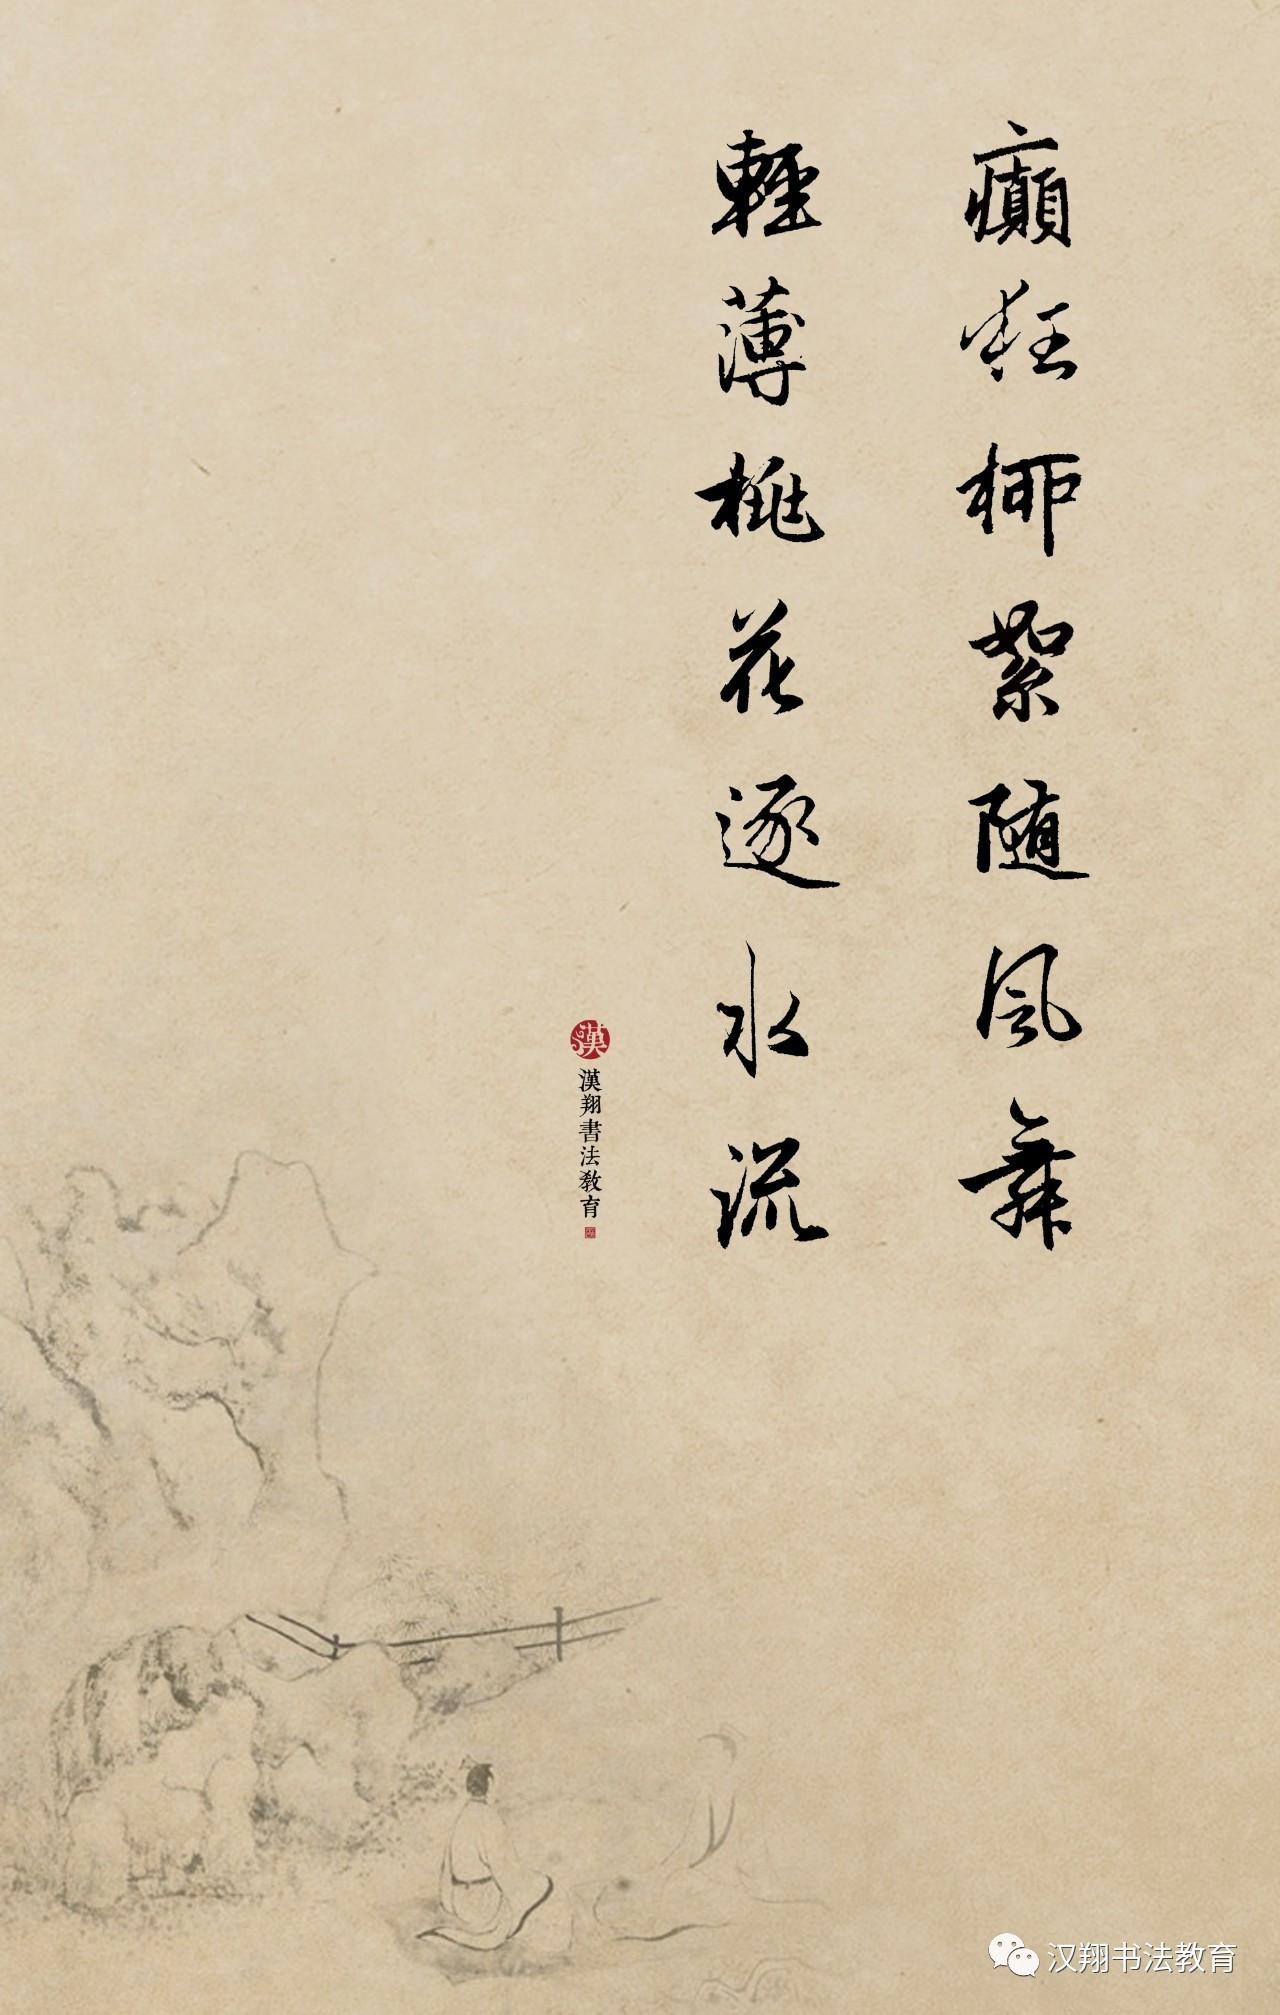 癲狂柳絮隨風舞
輕薄桃花逐水流
漢
漢翔書法教育
汉翔书法教育